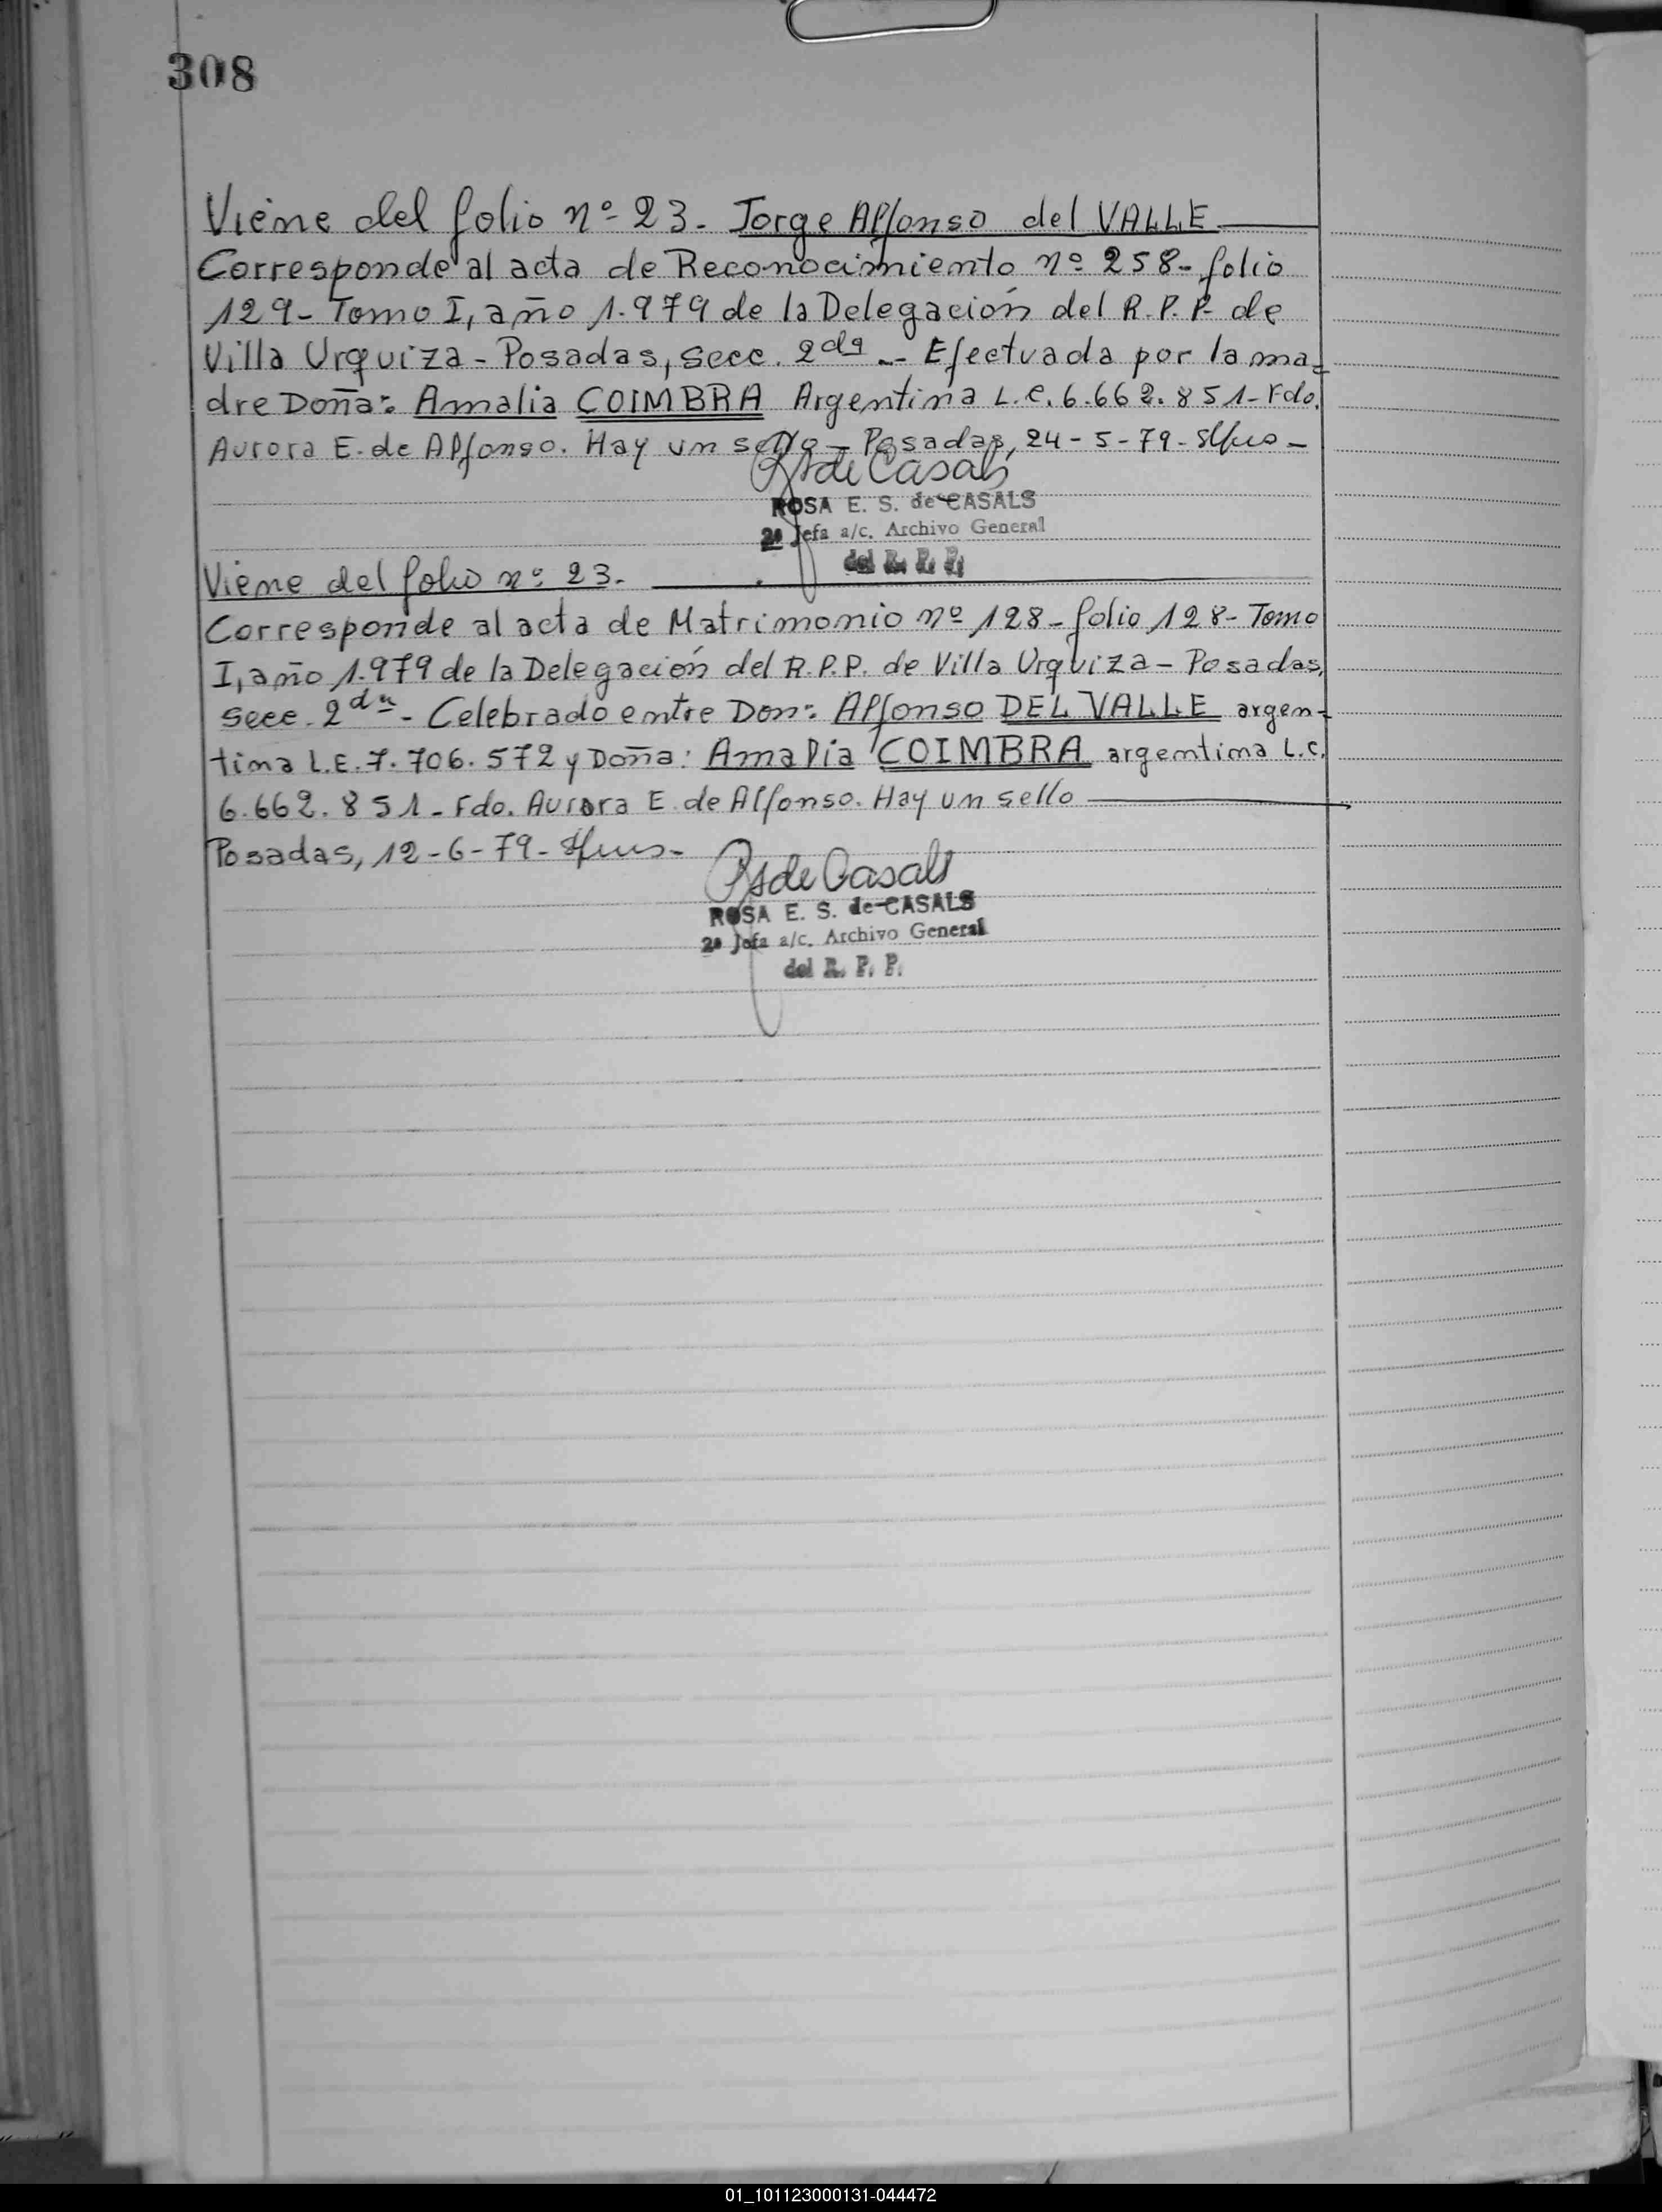 308
Viene del folio nº 23. Jorge Alfonso del VALLE
Corresponde al acta de Reconocimiento nº 258- folio
129- Tomo I, año 1.979 de la Delegación del R.P.P. de
Villa Urquiza - Posadas, Secc. 2da - Efectuada por la ma-
dre Doña: Amalia COIMBRA Argentina L.C. 6.662.851- Fdo.
Aurora E. de Alfonso. Hay un sello - Posadas, 24-5-79-
RSde Casals
ROSA E. S. de CASALS
2ª Jefa a/c. Archivo General
del R. P. P.
Viene del folio nº 23.
Corresponde al acta de Matrimonio nº 128- folio 128- Tomo
I, año 1.979 de la Delegación del R.P.P. de Villa Urquiza - Posadas,
Secc. 2da - Celebrado entre Don: Alfonso DEL VALLE argen-
tina L.E. 7.706.572 y Doña: Amalia COIMBRA argentina L.C.
6.662.851- Fdo. Aurora E. de Alfonso. Hay un sello
Posadas, 12-6-79-
RSde Casals
ROSA E. S. de CASALS
2ª Jefa a/c. Archivo General
del R. P. P.
01_101123000131-044472